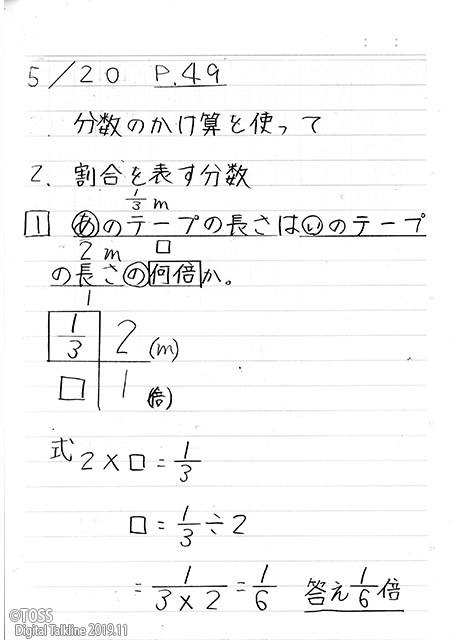 5/20 P.49
分数のかけ算を使って
2. 割合を表す分数
1/3 m
1 あのテープの長さはいのテープ
2 m □
の長さの何倍か。
1
1/3 2 (m)
□ 1 (倍)
式 2×□=1/3
□=1/3÷2
=1/(3×2)=1/6 答え 1/6倍
©TOSS
Digital Talkline 2019.11